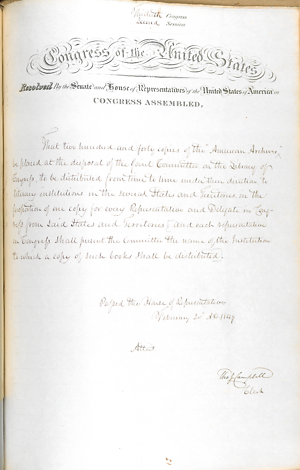 Thirtieth Congress
Second Session
Congress of the United States
Resolved By the Senate and House of Representatives of the United States of America in
CONGRESS ASSEMBLED,
That two hundred and forty copies of the "American Archives",
be placed at the disposal of the Joint Committee on the Library of
Congress, to be distributed from time to time under their direction to
literary institutions in the several States and Territories, in the
proportion of one copy for every Representative and Delegate in Cong-
ress from said States and Territories; and each representative
in Congress shall present the Committee the name of the Institution
to which a copy of such books shall be distributed.
Passed the House of Representatives
February 20 1849
Attest
Tho J Campbell
Clerk